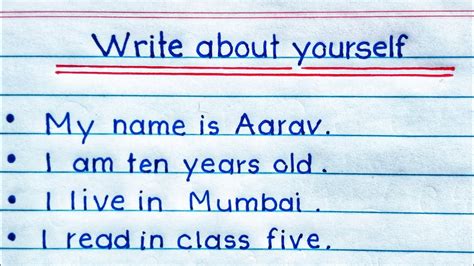 Write about yourself
• My name is Aarav.
• I am ten years old.
• I live in Mumbai.
• I read in class five.